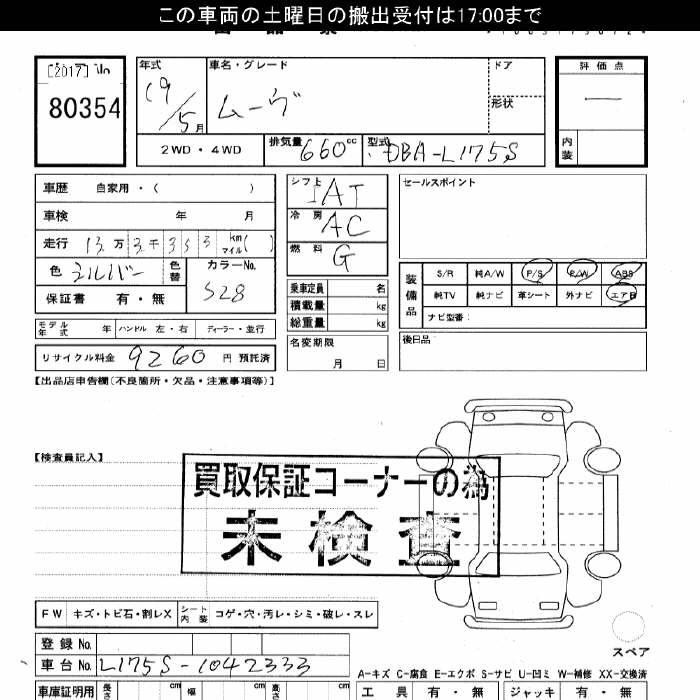 この車両の土曜日の搬出受付は17:00まで
[2017]
80354
年式
車名・グレード
ドア
評価点
19/5月
ムーヴ
形状
—
2WD・4WD
排気量 660 cc
型式 DBA-L175S
内装
車歴 自家用・( )
シフト IAT
セールスポイント
車検 年 月
冷房 AC
走行 13万3千353 km マイル( )
燃料 G
色 シルバー
色替
カラーNo. S28
装備品
S/R 純A/W P/S P/W ABS
保証書 有・無
乗車定員 名
純TV 純ナビ 革シート 外ナビ エアB
積載量 kg
ナビ型番:
総重量 kg
モデル年式 年 ハンドル 左・右 ディーラー・並行
名変期限
月 日
後日品
リサイクル料金 9260 円 預託済
【出品店申告欄(不良箇所・欠品・注意事項等)】
【検査員記入】
買取保証コーナーの為
未検査
FW キズ・トビ石・割レX シート内装 コゲ・穴・汚レ・シミ・破レ・スレ
スペア
登録No.
車台No. L175S-1042333
A-キズ C-腐食 E-エクボ S-サビ U-凹ミ W-補修 XX-交換済
車庫証明用 長さ cm 幅 cm 高さ cm
工具 有・無 ジャッキ 有・無